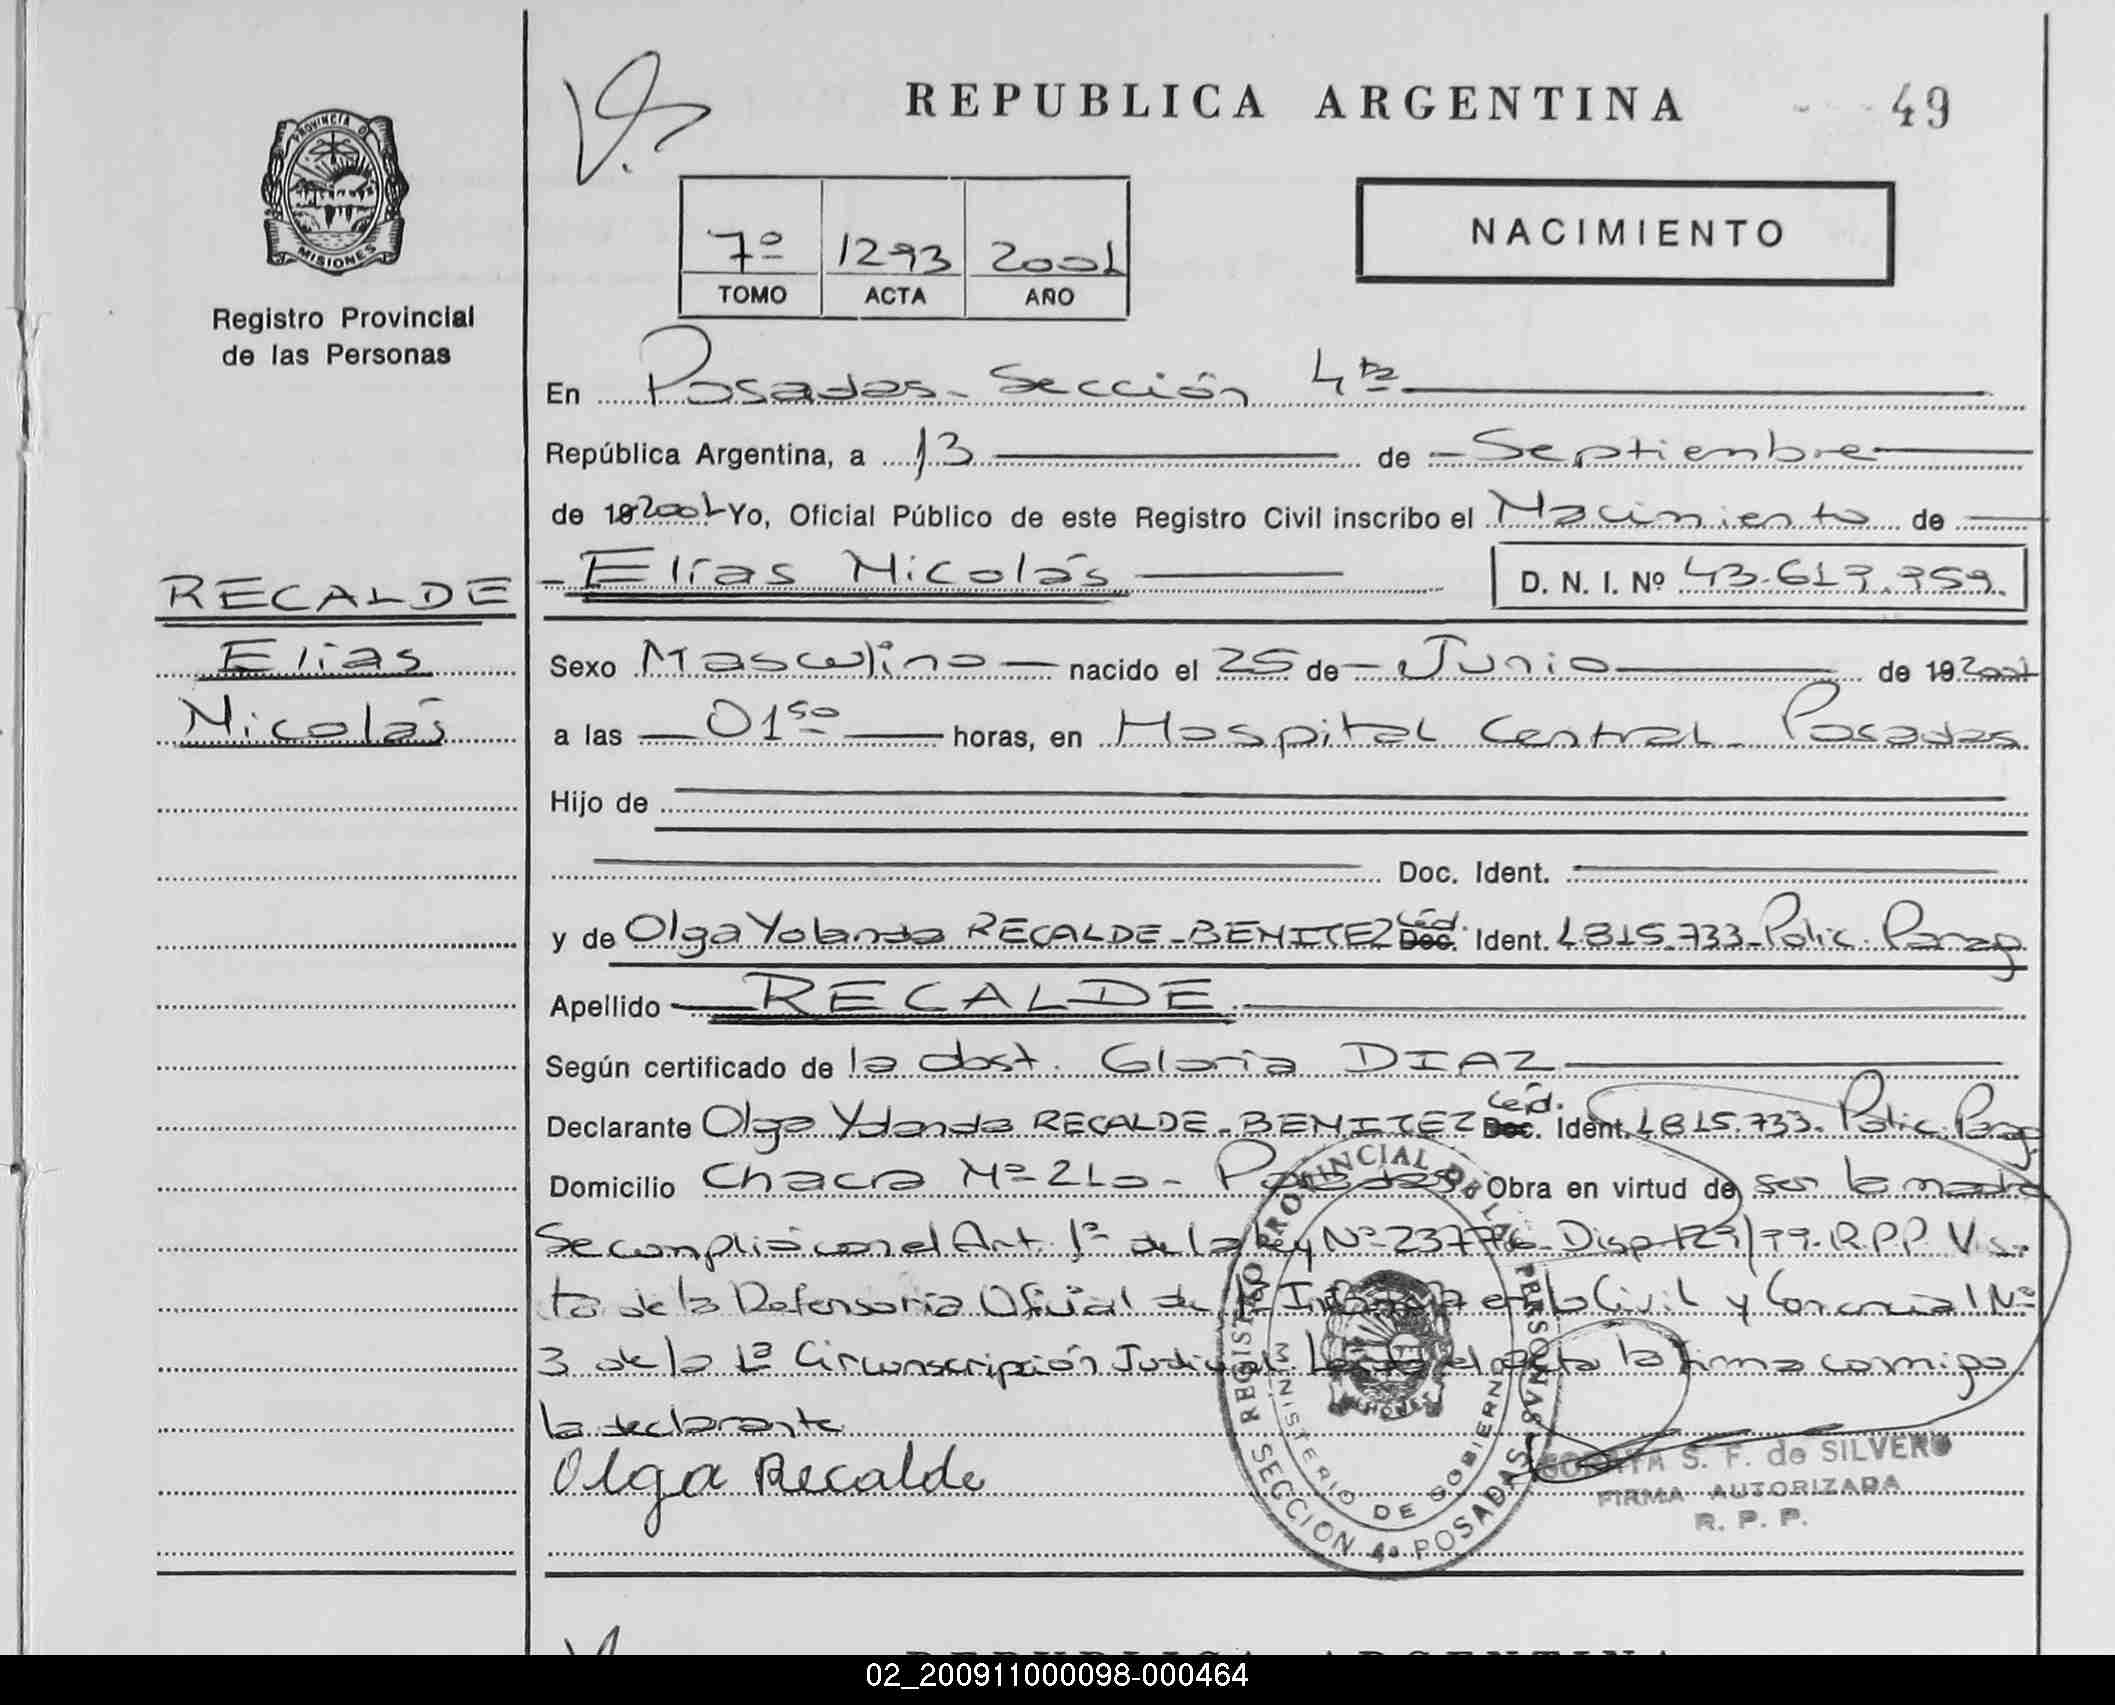 REPUBLICA ARGENTINA
49
PROVINCIA D
MISIONES
Registro Provincial
de las Personas
7º 1293 2001
TOMO ACTA AÑO
NACIMIENTO
En Posadas - Sección 4ta
República Argentina, a 13 de Septiembre
de 19 2001 Yo, Oficial Público de este Registro Civil inscribo el Nacimiento de
Elías Nicolás D. N. I. Nº 43.617.759.
RECALDE
Elias
Nicolás
Sexo Masculino nacido el 25 de Junio de 19 2001
a las 01 50 horas, en Hospital Central - Posadas
Hijo de
Doc. Ident.
y de Olga Yolanda RECALDE - BENITEZ Céd. Doc. Ident. 1.815.733 - Polic. Parag
Apellido RECALDE
Según certificado de la obst. Gloria DIAZ
Declarante Olga Yolanda RECALDE - BENITEZ Céd. Doc. Ident. 1.815.733 - Polic. Parag
Domicilio Chacra Nº 210 - Posadas Obra en virtud de ser la madre
Se cumplió con el Art. 1º de la Ley Nº 23776 - Disp 129/99. R.P.P Vis-
ta de la Defensoria Oficial de en lo Civil y Comercial Nº
3 de la 1ª Circunscripción Judicial. Leida el acta la firma conmigo
la declarante
Olga Recalde
REGISTRO PROVINCIAL DE LAS PERSONAS
MINISTERIO DE GOBIERNO
SECCION 4a POSADAS
S. F. de SILVERO
FIRMA AUTORIZADA
R. P. P.
REPUBLICA ARGENTINA
02_200911000098-000464